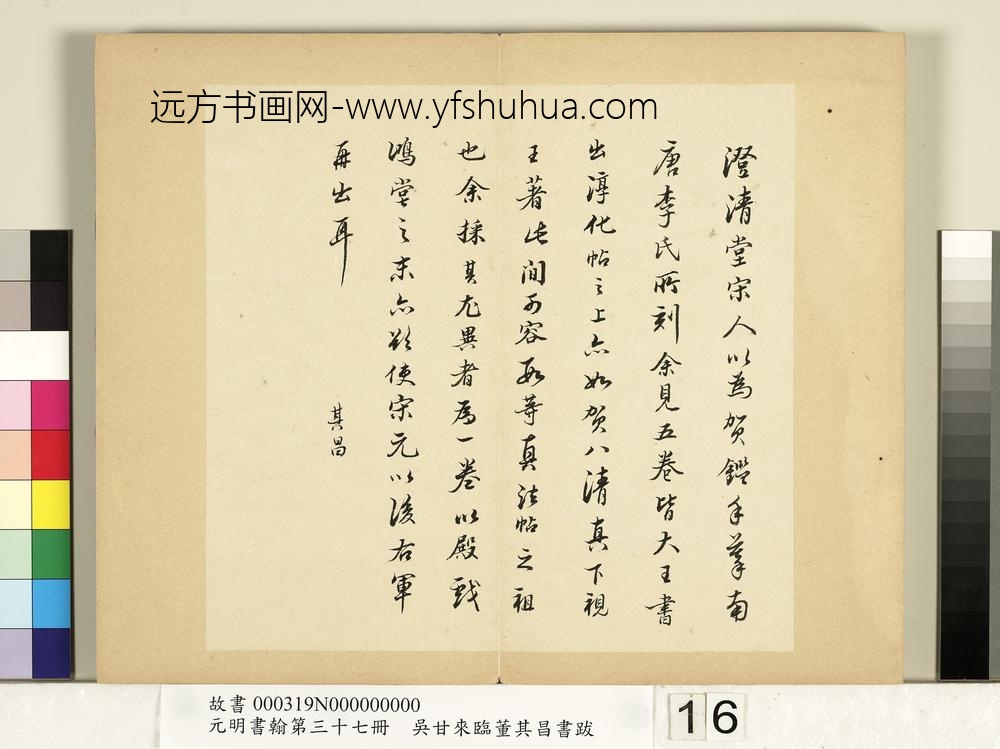 远方书画网-www.yfshuhua.com
澄清堂宋人以為賀鑑手摹南
唐李氏所刻余見五卷皆大王書
出淳化帖之上亦如賀八清真下視
王著此間可容數等真法帖之祖
也余採其尤異者為一卷以殿戲
鴻堂之末亦欲使宋元以後右軍
再出耳
其昌
故書 000319N000000000
元明書翰第三十七冊 吳甘來臨董其昌書跋
16